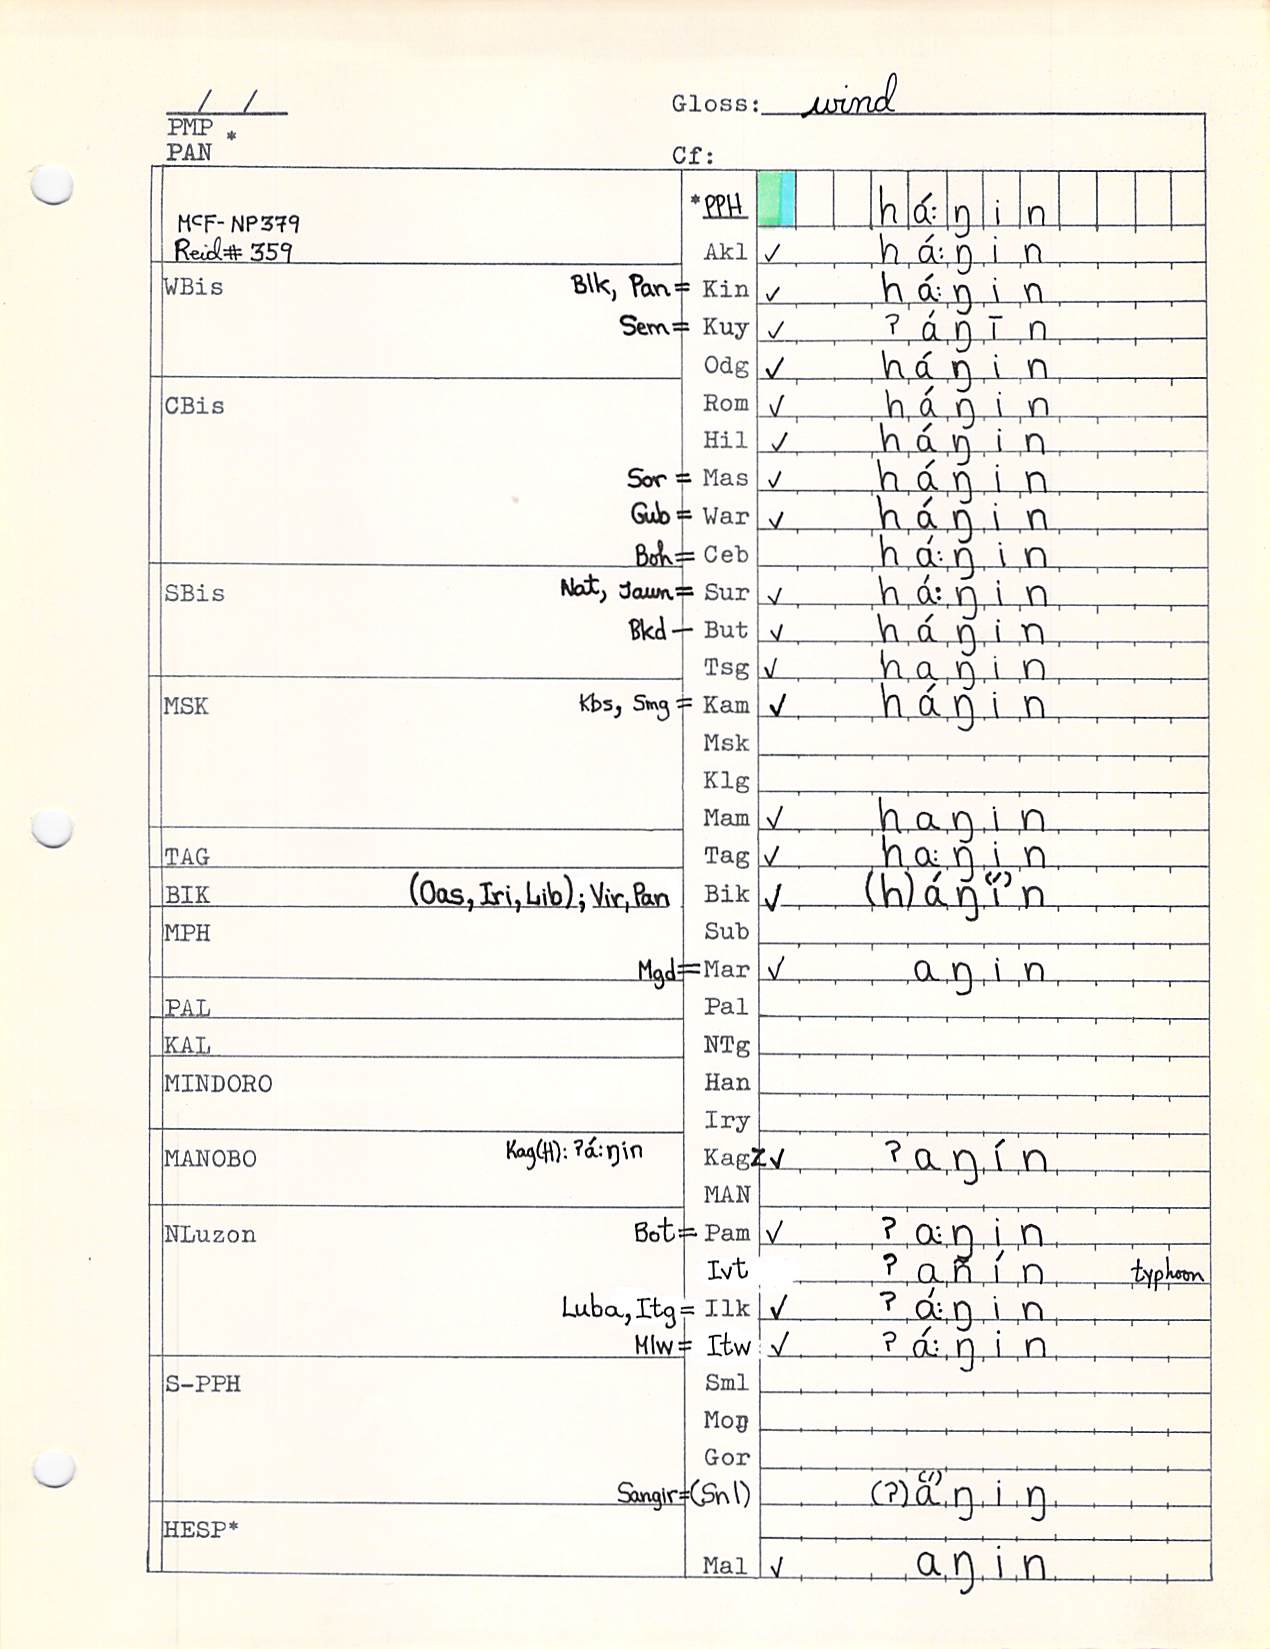 / / Gloss: wind
PMP *
PAN Cf:
McF-NP379 *PPH há:ŋin
Reid# 359
Akl ✓ há:ŋin
WBis Blk, Pan= Kin ✓ há:ŋin
Sem= Kuy ✓ ʔáŋīn
Odg ✓ háŋin
CBis Rom ✓ háŋin
Hil ✓ háŋin
Sor = Mas ✓ háŋin
Gub = War ✓ háŋin
Boh= Ceb há:ŋin
SBis Nat, Jaun= Sur ✓ há:ŋin
Bkd— But ✓ háŋin
Tsg ✓ haŋin
MSK Kbs, Smg = Kam ✓ háŋin
Msk
Klg
Mam ✓ haŋin
TAG Tag ✓ ha:ŋin
BIK (Oas, Iri, Lib); Vir, Pan Bik ✓ (h)áŋi(´)n
MPH Sub
Mgd= Mar ✓ aŋin
PAL Pal
KAL NTg
MINDORO Han
Iry
MANOBO Kag(H): ʔá:ŋin KagZ ✓ ʔaŋín
MAN
NLuzon Bot= Pam ✓ ʔa:ŋin
Ivt ʔañín typhoon
Luba, Itg= Ilk ✓ ʔá:ŋin
Mlw= Itw ✓ ʔá:ŋin
S-PPH Sml
Moŋ
Gor
Sangir=(Snl) (ʔ)a(´)ŋiŋ
HESP*
Mal ✓ aŋin